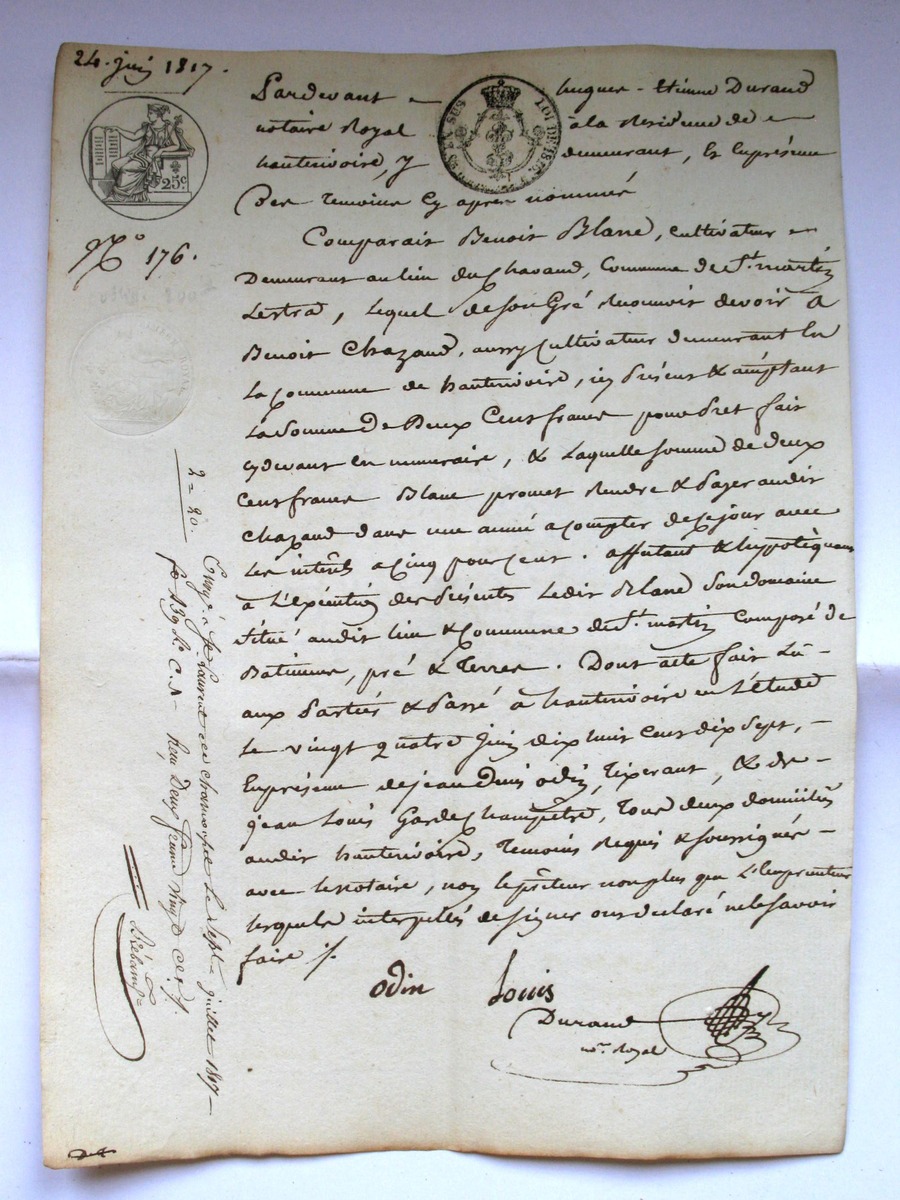 24. juin 1817.
25c
N° 176.
Pardevant hugues-Etienne Durand
LOI DE
notaire Royal à la Residence de
hauterivoire, y demeurant, En présence
Des Temoins Cy après nommés
Comparait Benoit Blanc, Cultivateur
Demeurant au lieu du Chavand, Commune de St. martin
Lestra, Lequel de son Gré Reconnoit devoir à
Benoit Chazaud, aussy Cultivateur demeurant En
La Commune de hauterivoire, icy Présent & acceptant
La Somme De Deux Cent francs pour Prêt fait
cydevant en numeraire, & Laquelle Somme de deux
Cent francs Blanc promet Rendre & Payer audit
Chazaud dans une année a compter de ce jour avec
Les intérêts a Cinq pour Cent. affectant & hypotéquant
à L'éxécution des Présentes Ledit Blanc Son domaine
Situé audit lieu & Commune de St. martin Composé de
Batiments, pré & Terres. Dont acte fait Lu
aux Parties & Passé à hauterivoire en L'étude
Le vingt quatre Juin dix huit Cent dix Sept,
En présence de jean Denis odin, Tixerant, & de
jean Louis Garde Champêtre, Tous deux domiciliés
audit hauterivoire, Temoins Requis & Soussignés
avec le notaire, non le prêteur non plus que L'Emprunteur
lesquels interpellés de signer ont declaré ne le savoir
faire /.
odin Louis
Durand
nre. Royal
2 = 20.
Enrgé à St Laurent de chamousset Le Sept juillet 1817
fo 139 Ro C. Reçu Deux francs vingt Ces.